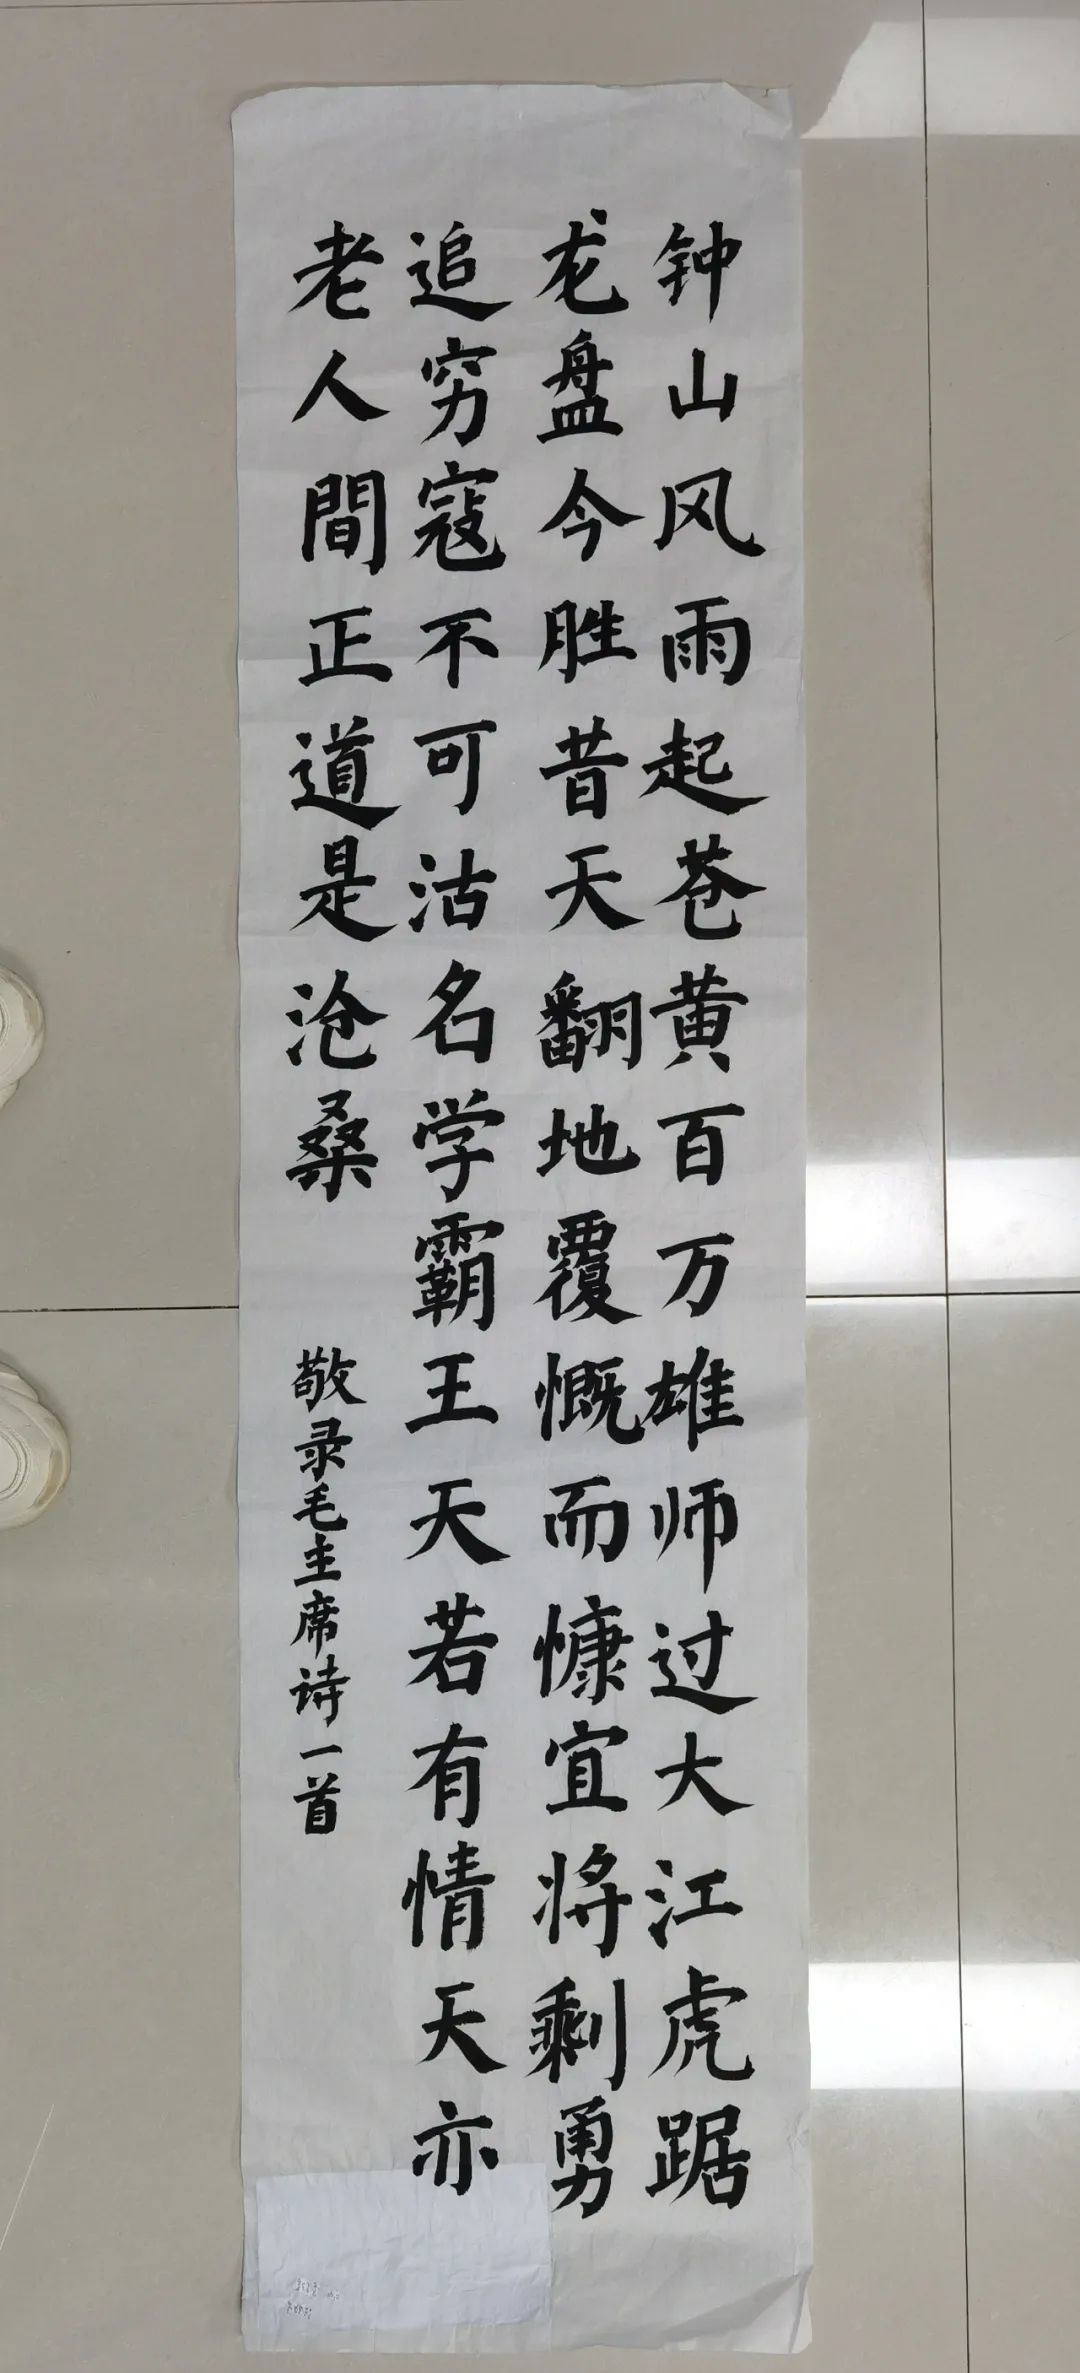 钟山风雨起苍黄百万雄师过大江虎踞
龙盘今胜昔天翻地覆慨而慷宜将剩勇
追穷寇不可沽名学霸王天若有情天亦
老人間正道是沧桑
敬录毛主席诗一首